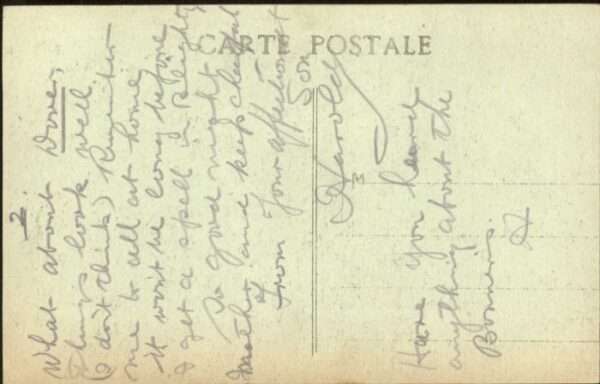 CARTE POSTALE
2.
What about Dover,
things look well
(I don't think) Remember
me to all at home
it won't be long before
I get a spell in Blighty
So good night
Mother and keep cheerful
From Your affectionate
Son
Harold
Have you heard
anything about the
Bonners